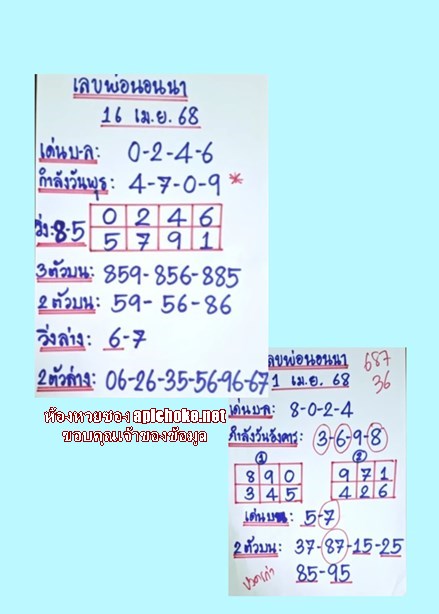 เลขพ่อนอนนา
16 เม.ย. 68
เด่นบ-ล: 0-2-4-6
กำลังวันพุธ: 4-7-0-9 *
วิ่ง:8.5
0 2 4 6
5 7 9 1
3ตัวบน: 859-856-885
2ตัวบน: 59-56-86
วิ่งล่าง: 6-7
2ตัวล่าง: 06-26-35-56-96-67
ห้องหวยของ aplchoke.net
ขอบคุณเจ้าของข้อมูล
เลขพ่อนอนนา 687
1 เม.ย. 68 36
เด่นบ-ล: 8-0-2-4
กำลังวันอังคาร: 3-6-9-8
① ②
8 9 0 9 7 1
3 4 5 4 2 6
เด่นบน: 5-7
2ตัวบน: 37-87-15-25
85-95